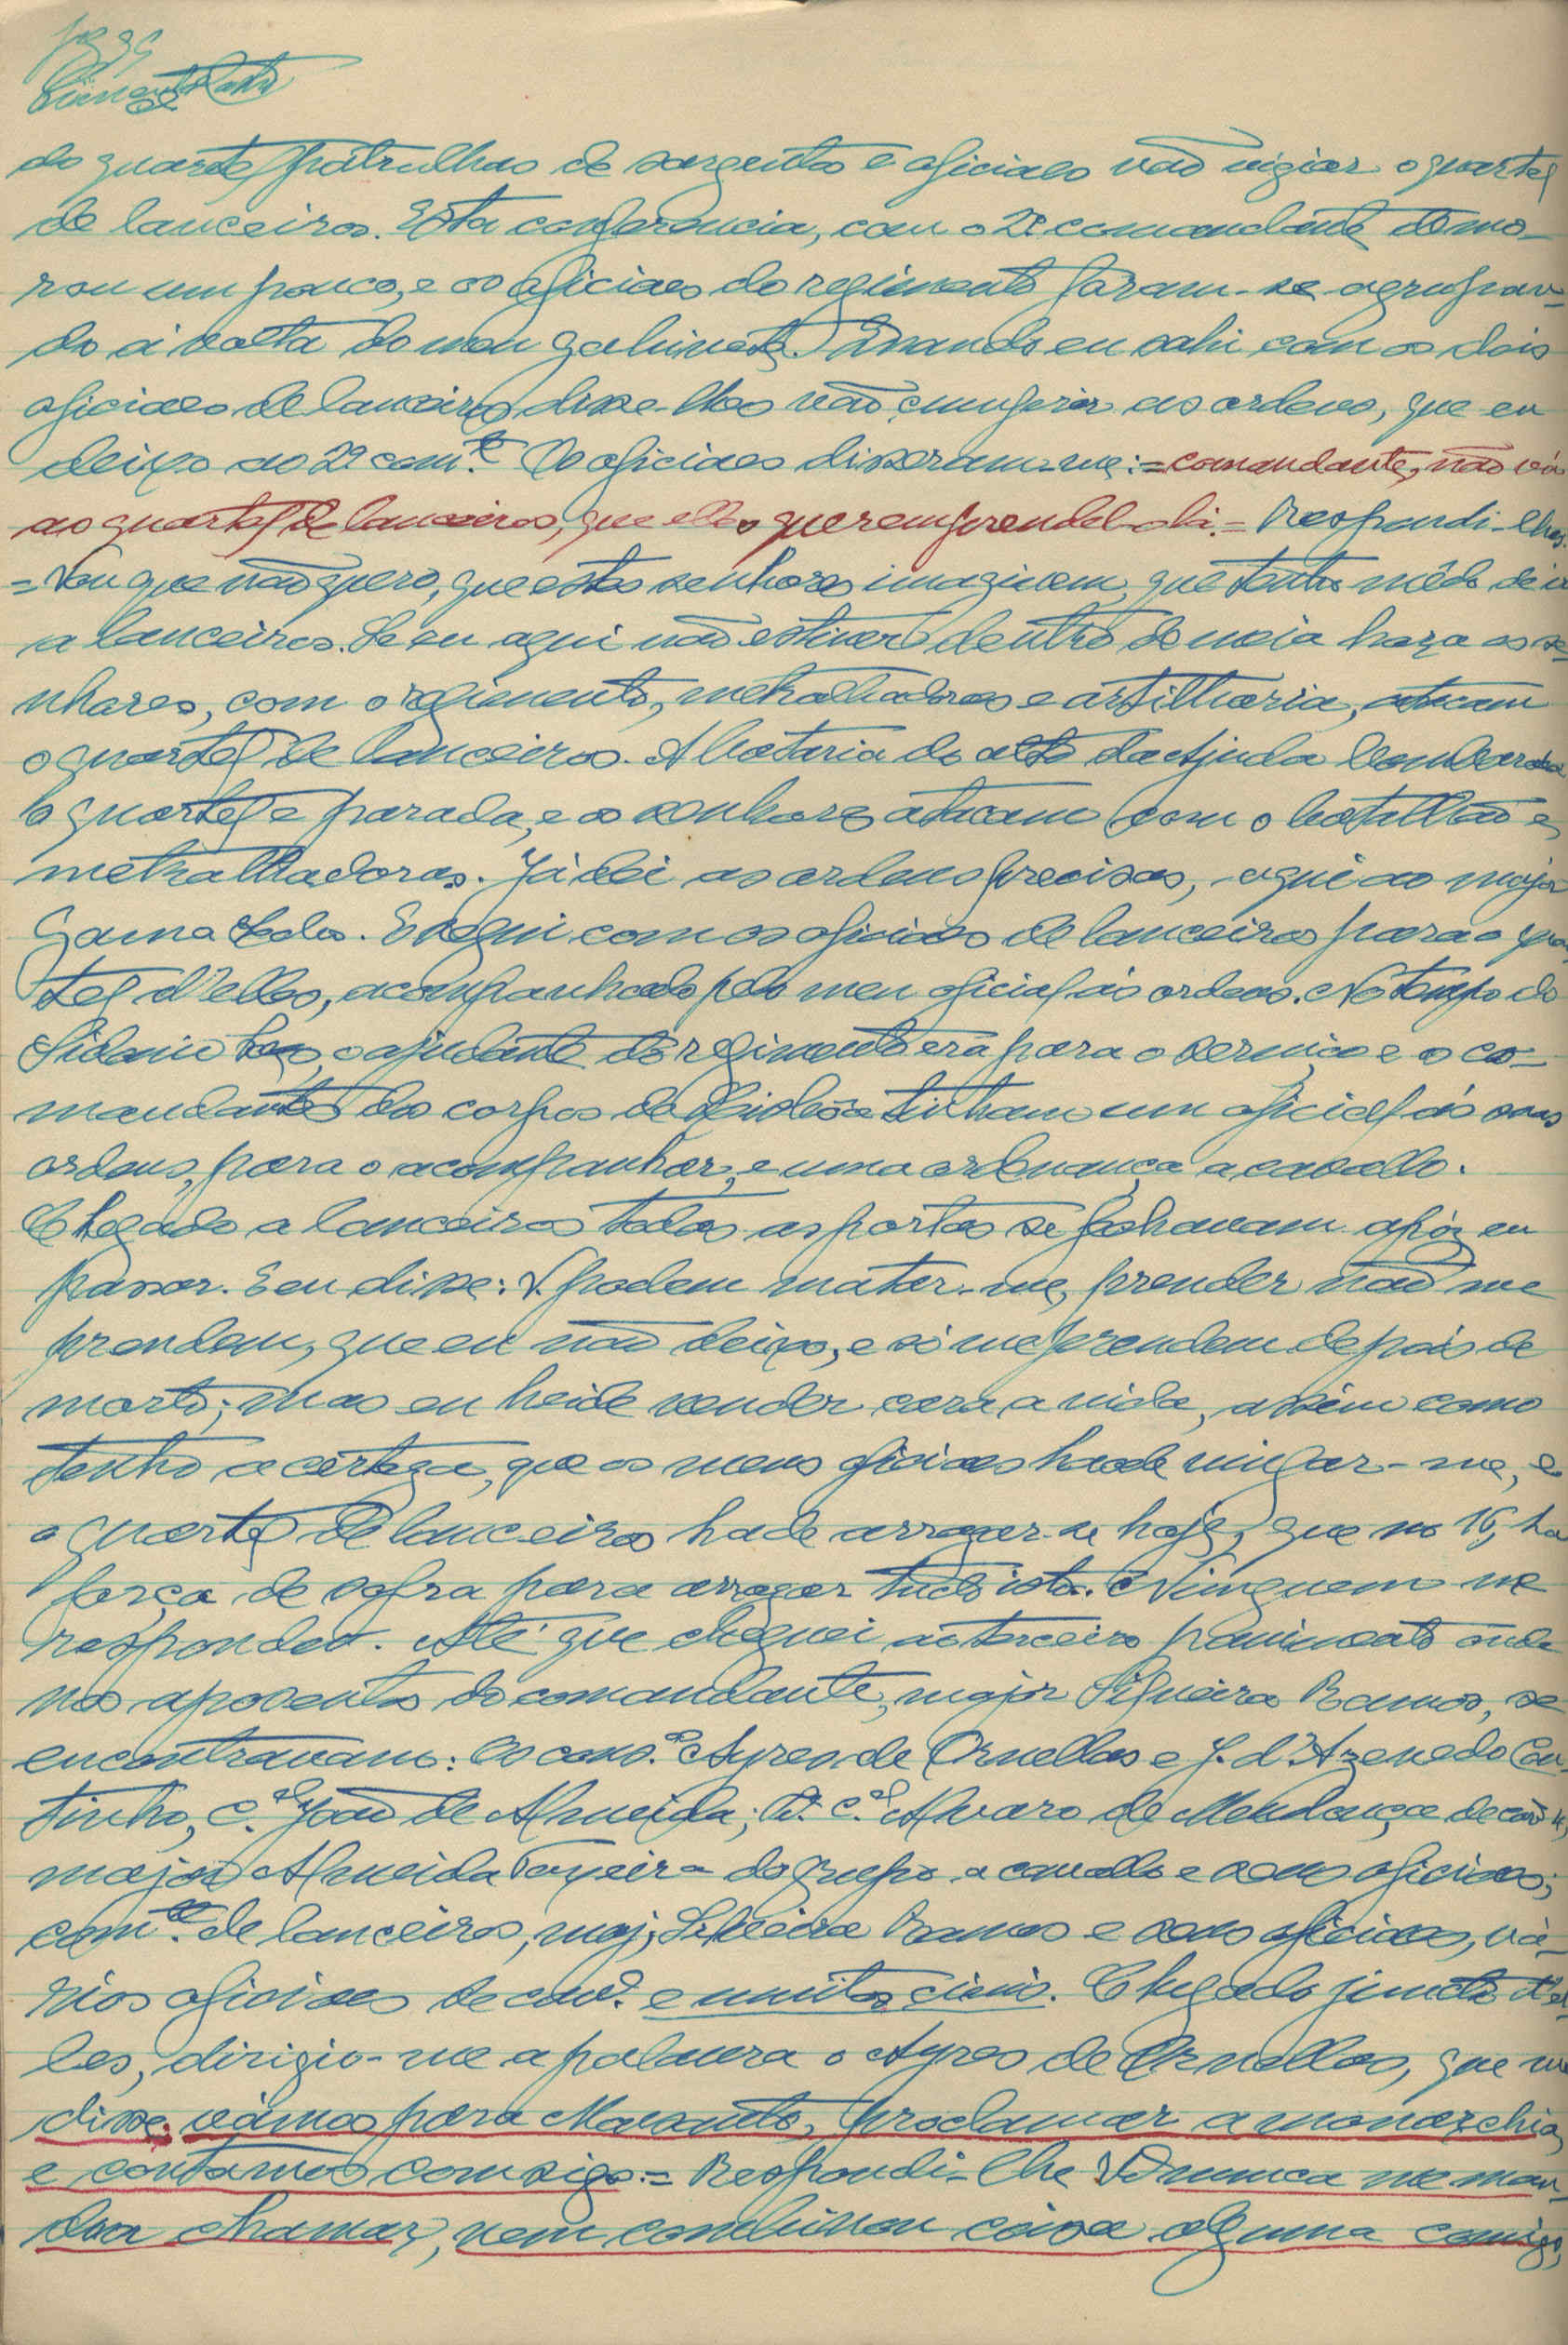 do quartel patrulhas de sargentos e oficiaes vão vigiar o quartel
de lanceiros. Esta conferencia, com o 2º comandante demo-
rou um pouco, e os oficiaes do regimento foram-se agrupan-
do á volta do meu gabinete. Quando eu sahi com os dois
oficiaes de lanceiros, disse-lhes vão cumprir as ordens, que eu
deixo ao 2º com.te Os oficiaes disseram-me:=comandante, não vá
ao quartel de lanceiros, que elles querem prendel-o ahi.= Respondi-lhes
=Vou que não quero, que estes senhores imaginem, que tenho mêdo de ir
a lanceiros. Se eu aqui não estiver dentro de meia hora os se-
nhores, com o regimento, metralhadoras e artilharia, atacam
o quartel de lanceiros. A bataria do alto da Ajuda bombardea
o quartel e parada, e os senhores atacam com o batalhão e
metralhadoras. Já dei as ordens precisas, aqui ao major
Gama Lobo. E segui com os oficiaes de lanceiros para o quar-
tel d'elles, acompanhado pelo meu oficial ás ordens. No tempo do
Sidonio Paes, o ajudante do regimento era para o serviço e o co-
mandantes dos corpos de Lisboa tinham um oficial ás suas
ordens, para o acompanhar, e uma ordenança a cavallo.
Chegado a lanceiros todas as portas se fechavam após eu
passar. E eu disse: V. podem matar-me, prender não me
prendem, que eu não deixo, e só me prendem depois de
morto; mas eu heide vender cara a vida, assim como
tenho a certeza, que os meus oficiaes hade vingar-me, e
o quartel de lanceiros hade arrasar-se hoje, que no 16, ha
força de sobra para arrasar tudo isto. Ninguem me
respondeu. Até que cheguei ao terceiro pavimento onde
nos aposentos do comandante, major Silveira Ramos, se
encontravam: Os cons.os Ayres de Ornellas e J. d'Azevedo Cou-
tinho, C.el João de Almeida; T. C.el Alvaro de Mendonça de cav.ª 4,
major Almeida Teixeira do grupo a cavallo e seus oficiaes;
com.te de lanceiros, maj. Silveira Ramos e seus oficiaes, vá-
rios oficiaes de cav.ª e muitos civis. Chegado junto d'el-
les, dirigio-me a palavra o Ayres de Ornellas, que me
disse: vámos para Monsanto, proclamar a monarchia,
e contamos comsigo.= Respondi-lhe V. nunca me man-
dou chamar, nem combinou coisa alguma comigo,